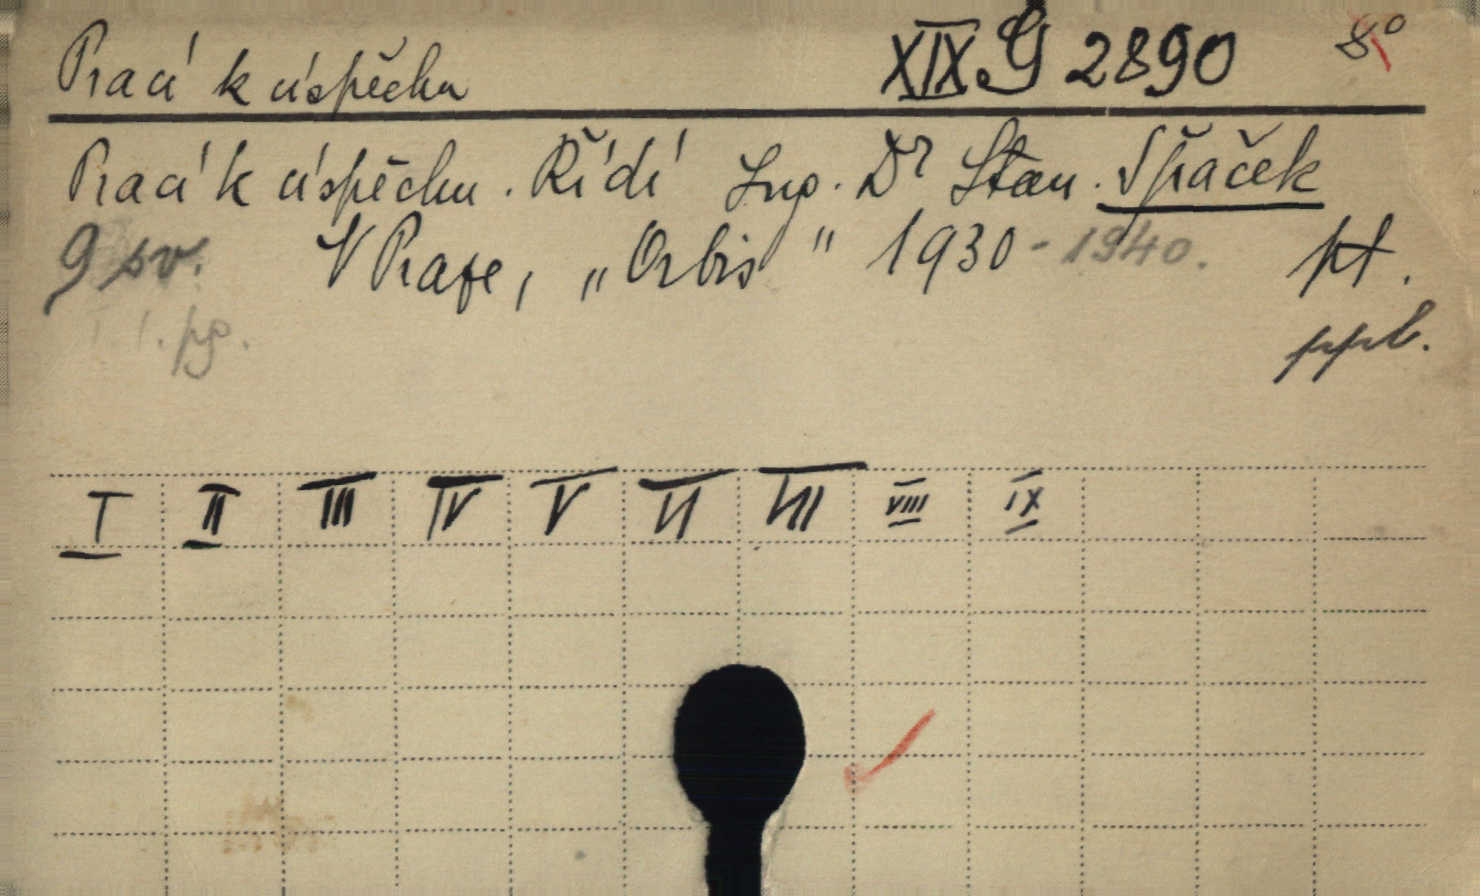 Prací k úspěchu XIX G 2890 8°
Prací k úspěchu. Řídí Ing. Dr Stan. Špaček
9 sv. V Praze, „Orbis" 1930-1940. pt.
pg. ppb.
I II III IV V VI VII VIII IX